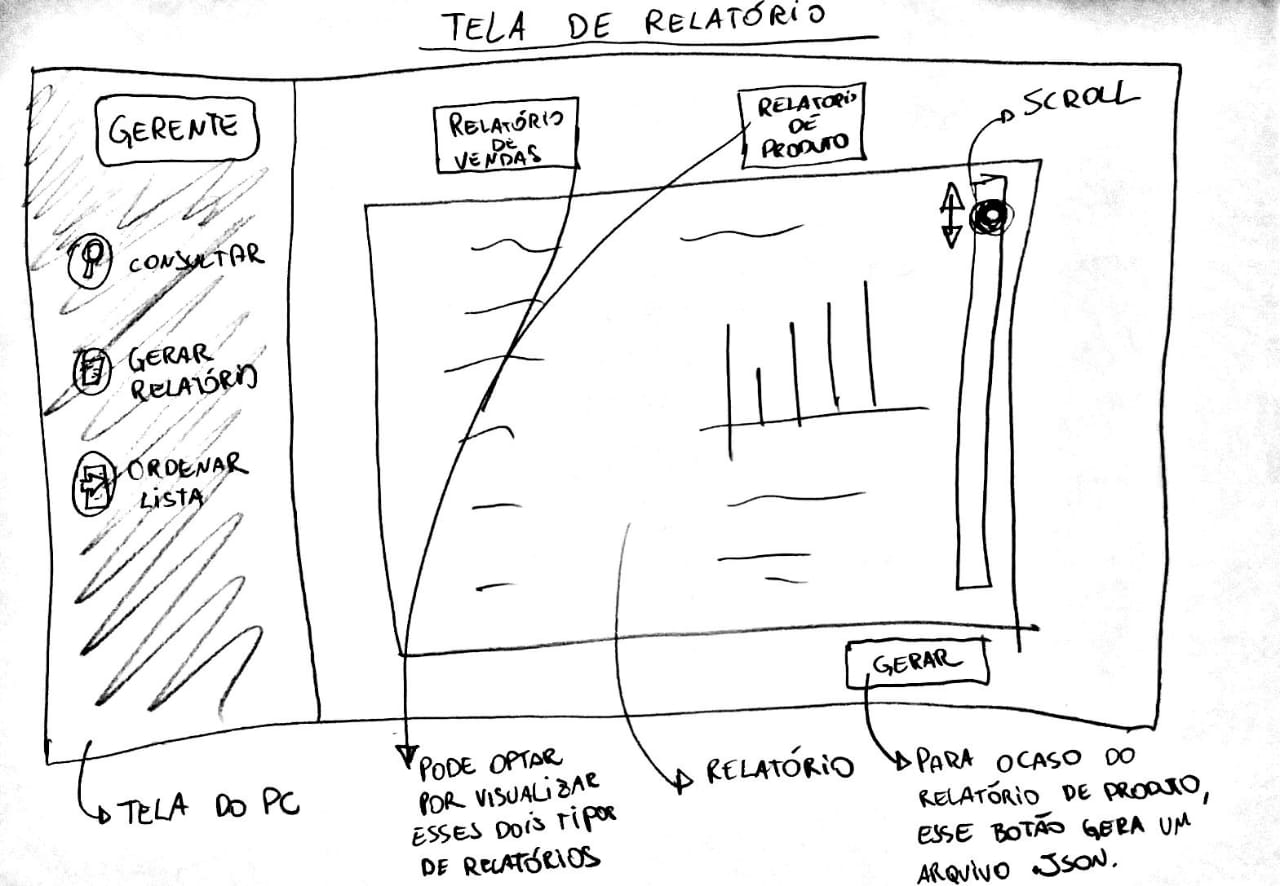 TELA DE RELATÓRIO
GERENTE
CONSULTAR
GERAR
RELATÓRIO
ORDENAR
LISTA
RELATÓRIO
DE
VENDAS
RELATORIO
DE
PRODUTO
SCROLL
GERAR
TELA DO PC
PODE OPTAR
POR VISUALIZAR
ESSES DOIS TIPOS
DE RELATÓRIOS
RELATÓRIO
PARA O CASO DO
RELATÓRIO DE PRODUTO,
ESSE BOTÃO GERA UM
ARQUIVO .JSON.